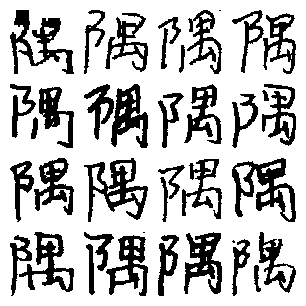 隅隅隅隅
隅隅隅隅
隅隅隅隅
隅隅隅隅